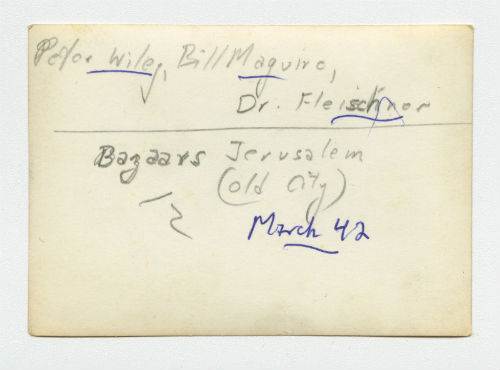 Peter Wiley, Bill Maguire,
Dr. Fleischner
Bazaars Jerusalem
(old City)
March 42